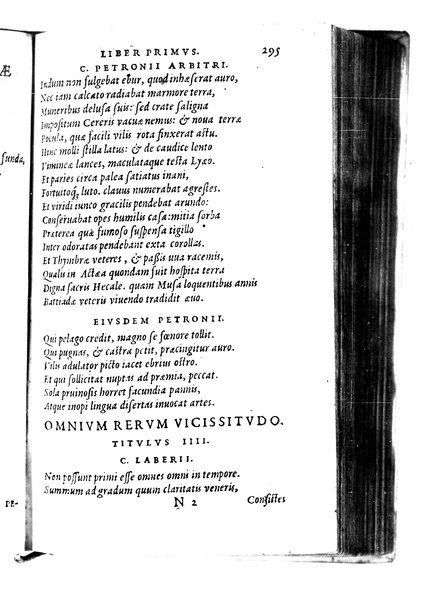 LIBER PRIMVS. 295
C. PETRONII ARBITRI.
Indum non fulgebat ebur, quod inhæserat auro,
Nec iam calcato radiabat marmore terra,
Muneribus delusa suis: sed crate saligna
Impositum Cereris vacuæ nemus: & noua terræ
Pocula, quæ facili vilis rota finxerat astu.
Hinc molli stilla latus: & de caudice lento
Vimineæ lances, maculataque testa Lyæo.
Et paries circa palea satiatus inani,
Fortuitoq; luto. clauus numerabat agrestes.
Et viridi iunco gracilis pendebat arundo:
Conseruabat opes humilis casa: mitia sorba
Præterea quæ fumoso suspensa tigillo
Inter odoratas pendebant exta corollas.
Et Thymbræ veteres, & passis uua racemis,
Qualis in Actæa quondam fuit hospita terra
Digna sacris Hecale. quam Musa loquentibus annis
Battiadæ veteris viuendo tradidit æuo.
EIVSDEM PETRONII.
Qui pelago credit, magno se fœnore tollit.
Qui pugnas, & castra petit, præcingitur auro.
Vilis adulator picto iacet ebrius ostro.
Et qui sollicitat nuptas ad præmia, peccat.
Sola pruinosis horret facundia pannis,
Atque inopi lingua disertas inuocat artes.
OMNIVM RERVM VICISSITVDO.
TITVLVS IIII.
C. LABERII.
Non possunt primi esse omnes omni in tempore.
Summum ad gradum quum claritatis veneris,
N 2 Consistes
Æ
funda,
PE-